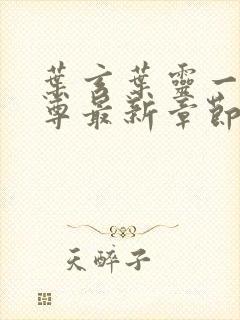 葉玄葉靈一
尊最新章節
天醉子